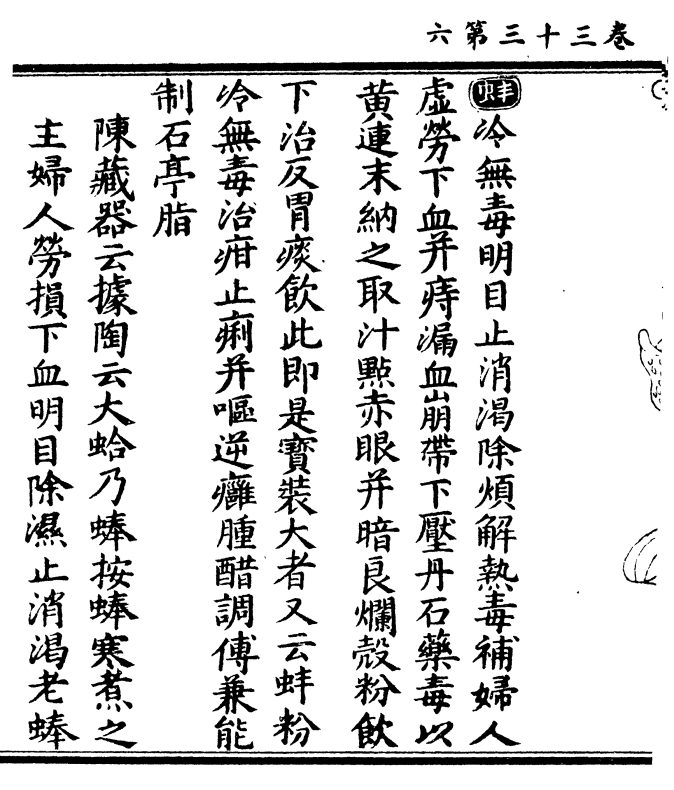 卷三十三第六
蚌冷無毒明目止消渴除煩解熱毒補婦人
虛勞下血并痔漏血崩帶下壓丹石藥毒以
黃連末納之取汁點赤眼并暗良爛殼粉飲
下治反胃痰飲此即是寶裝大者又云蚌粉
冷無毒治疳止痢并嘔逆癰腫醋調傅兼能
制石亭脂
陳藏器云據陶云大蛤乃蜯按蜯寒煮之
主婦人勞損下血明目除濕止消渴老蜯